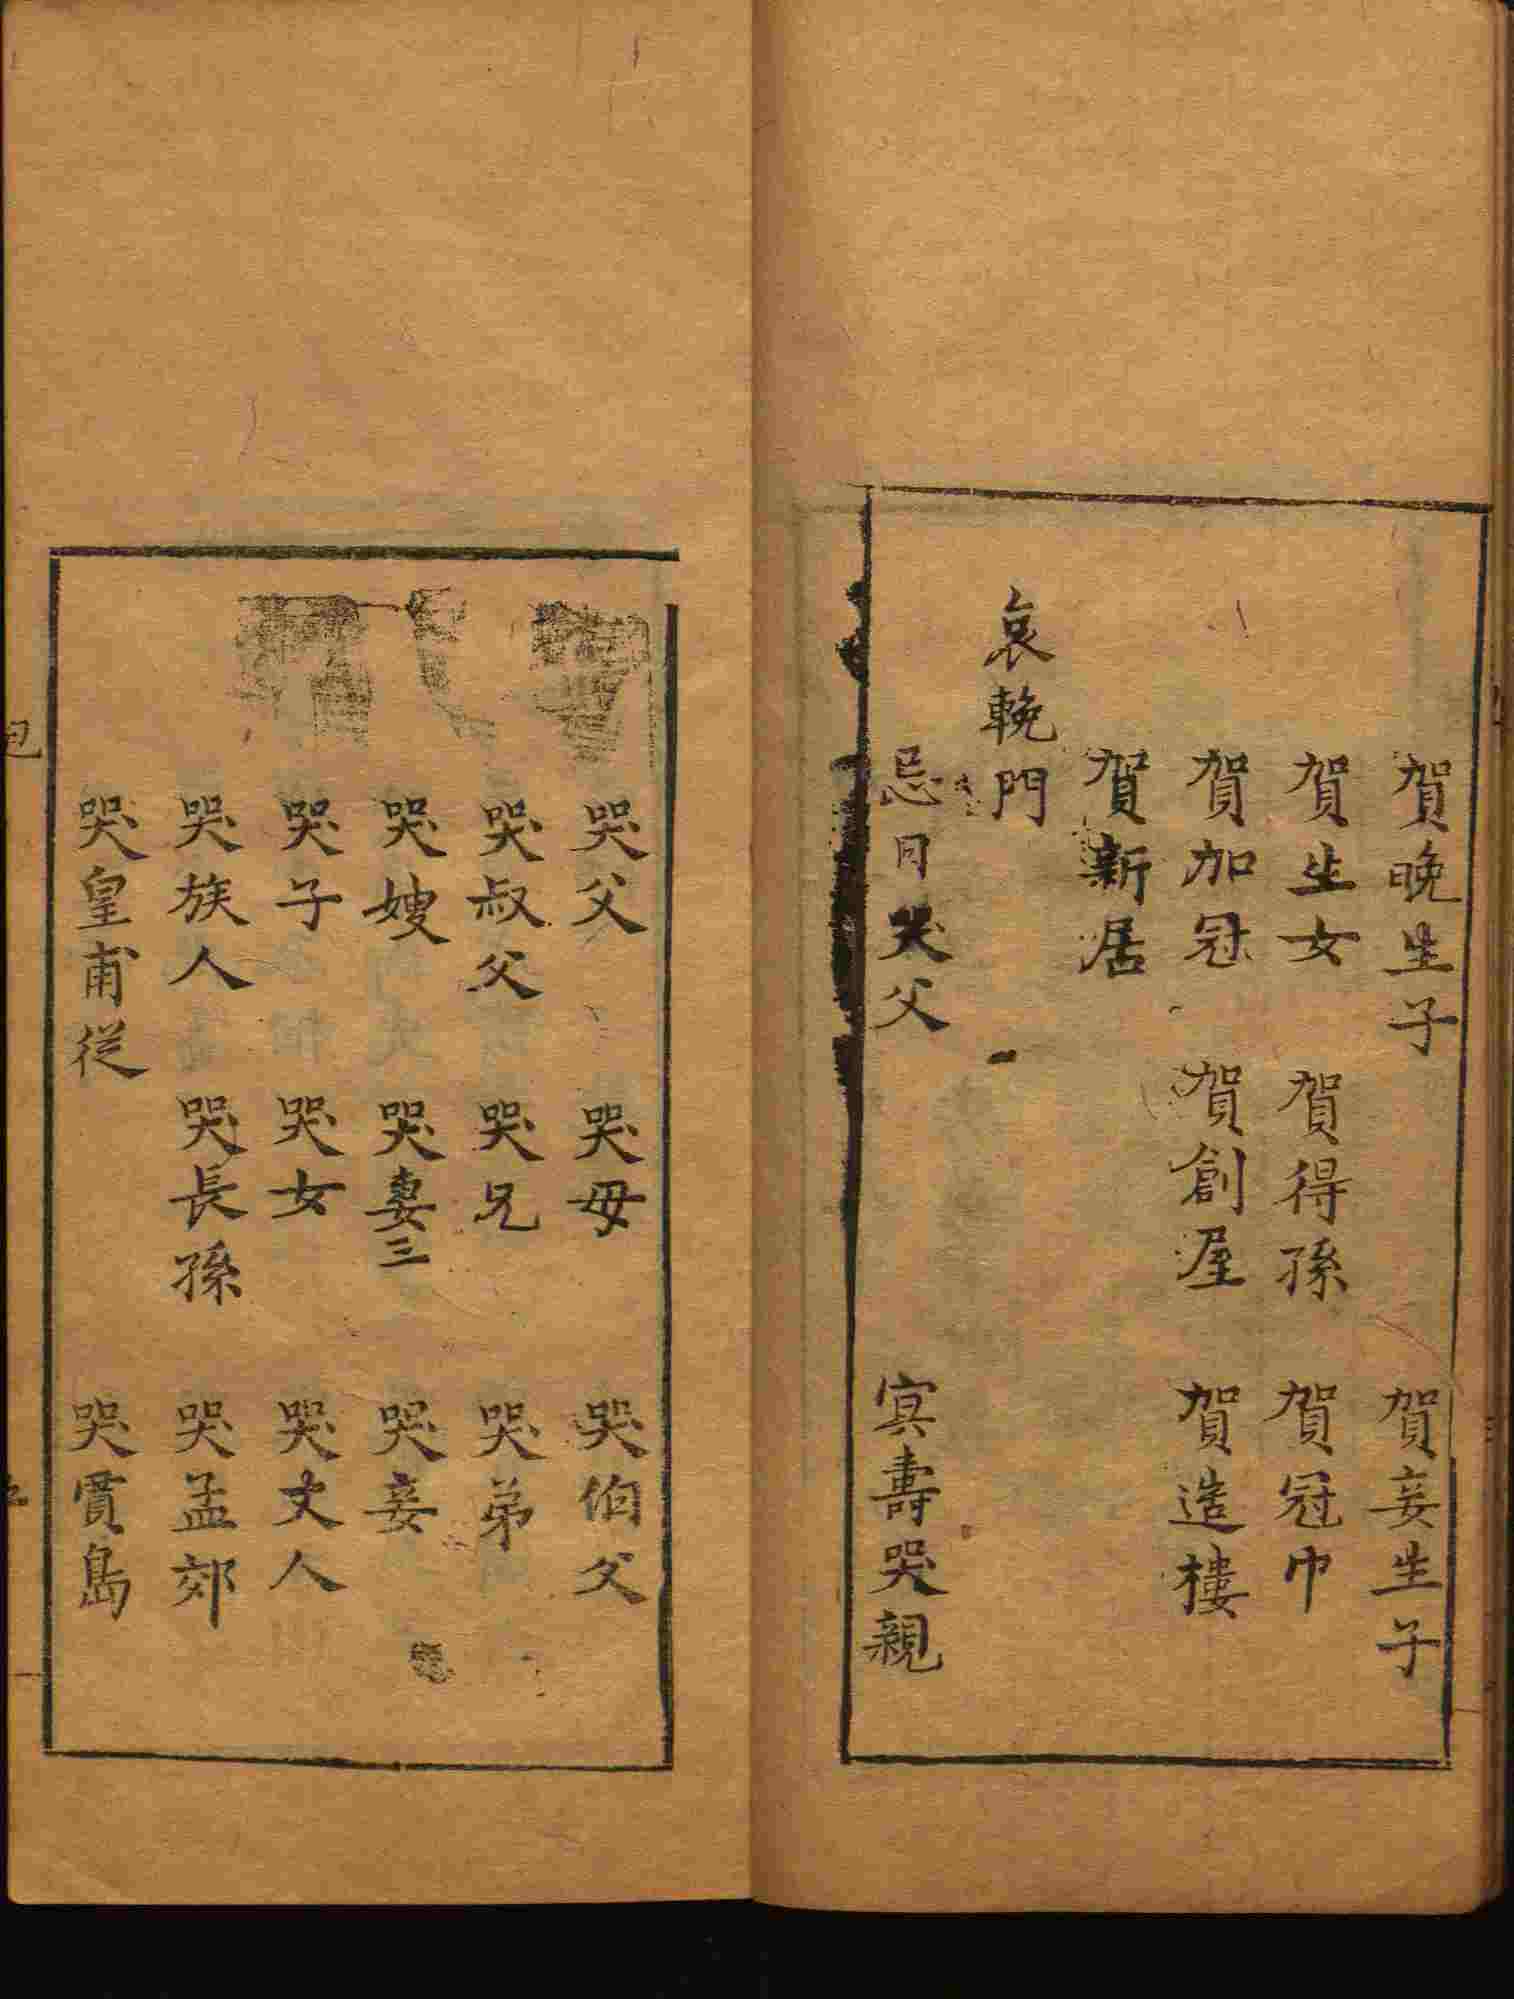 賀晚生子 賀妾生子
賀生女 賀得孫 賀冠巾
賀加冠 賀創屋 賀造樓
賀新居
哀輓門
忌日哭父 㝠壽哭親
哭父 哭母 哭伯父
哭叔父 哭兄 哭弟
哭嫂 哭妻三 哭妾
哭子 哭女 哭丈人
哭族人 哭長孫 哭孟郊
哭皇甫從 哭賈島